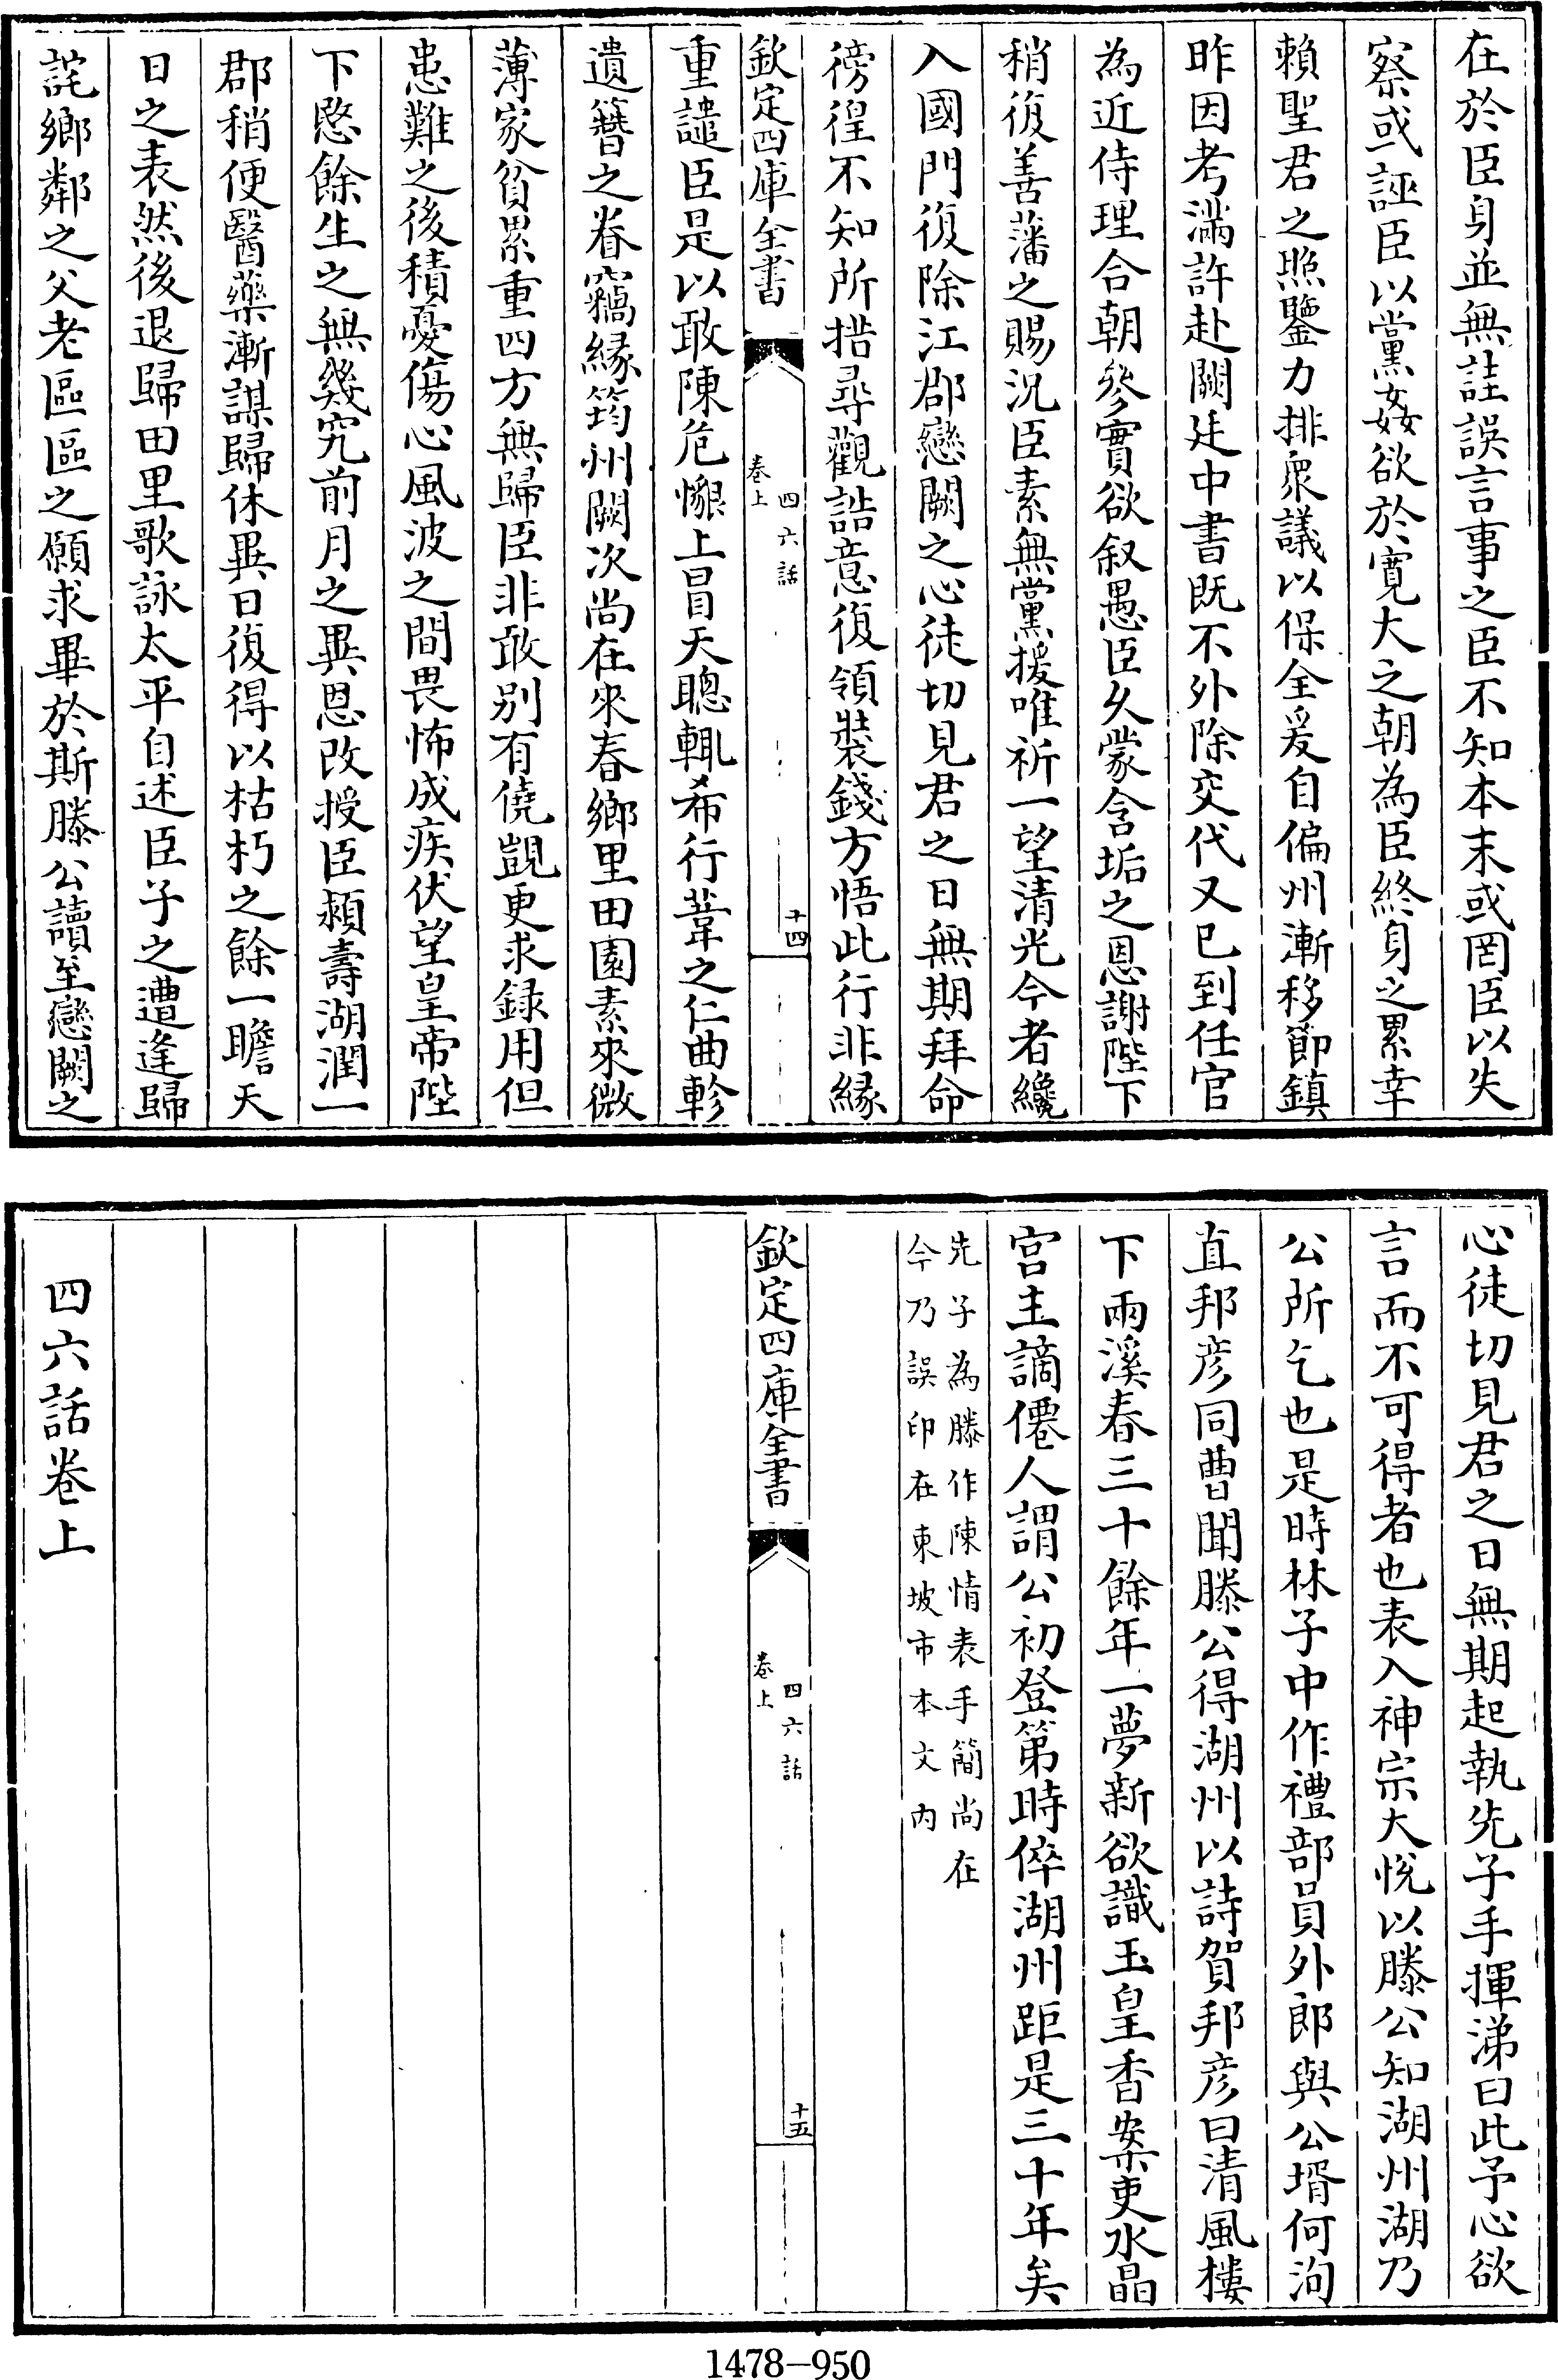 在於臣身並無註誤言事之臣不知本末或罔臣以失
察或誣臣以黨姦欲於寛大之朝為臣終身之累幸
賴聖君之照鑒力排衆議以保全爰自偏州漸移節鎮
昨因考滿許赴闕廷中書既不外除交代又已到任官
為近侍理合朝參實欲叙愚臣久蒙含垢之恩謝陛下
稍復善藩之賜況臣素無黨援唯祈一望清光今者纔
入國門復除江郡戀闕之心徒切見君之日無期拜命
徬徨不知所措尋觀誥意復領裝錢方悟此行非縁
欽定四庫全書
四六話
卷上
十四
重譴臣是以敢陳危懇上冒天聰輒希行葦之仁曲軫
遺簪之眷竊縁筠州闕次尚在來春鄉里田園素來微
薄家貧累重四方無歸臣非敢别有僥覬更求録用但
患難之後積憂傷心風波之間畏怖成疾伏望皇帝陛
下愍餘生之無幾究前月之異恩改授臣潁壽湖潤一
郡稍便醫藥漸謀歸休異日復得以枯朽之餘一瞻天
日之表然後退歸田里歌詠太平自述臣子之遭逢歸
詫鄉鄰之父老區區之願求畢於斯滕公讀至戀闕之
心徒切見君之日無期起執先子手揮涕曰此予心欲
言而不可得者也表入神宗大悅以滕公知湖州湖乃
公所乞也是時林子中作禮部員外郎與公壻何洵
直邦彦同曹聞滕公得湖州以詩賀邦彦曰清風樓
下兩溪春三十餘年一夢新欲識玉皇香案吏水晶
宫主謫僊人謂公初登第時倅湖州距是三十年矣
先子為滕作陳情表手簡尚在
今乃誤印在東坡市本文内
欽定四庫全書
四六話
卷上
十五
四六話卷上
1478-950